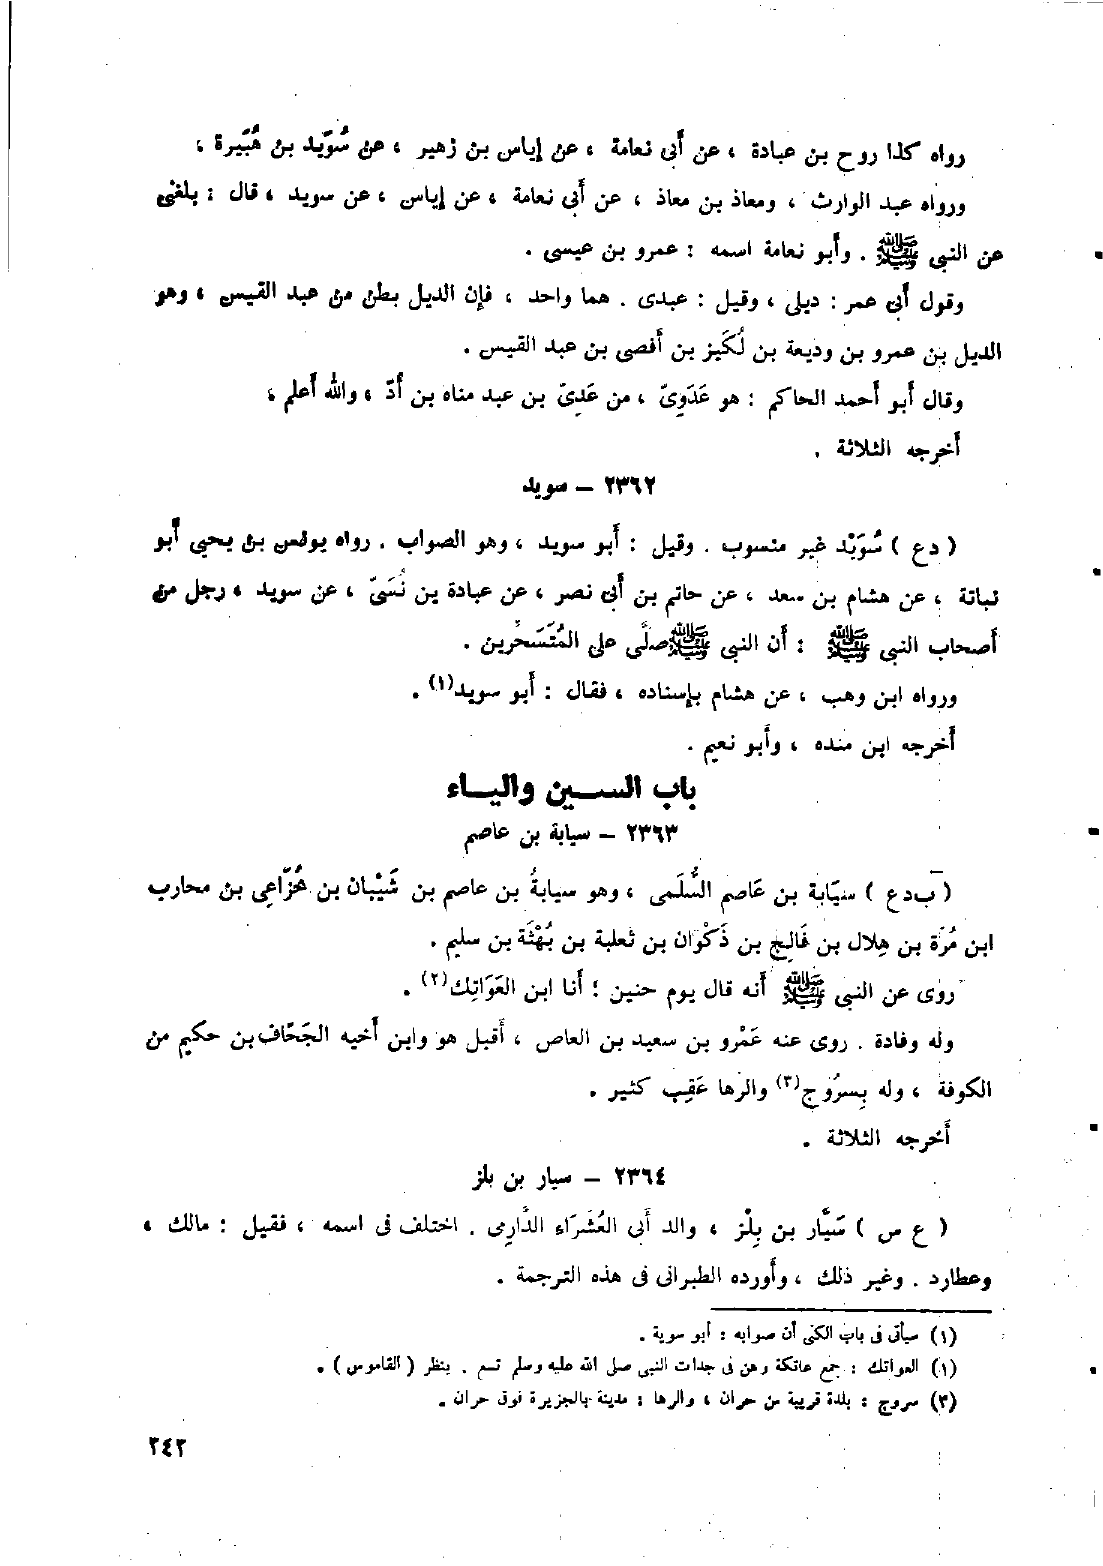 رواه كذا روح بن عبادة ، عن أبى نعامة ، عن إياس بن زهير ، عن سُوَيد بن هُبَيرة ،
ورواه عبد الوارث ، ومعاذ بن معاذ ، عن أبى نعامة ، عن إياس ، عن سويد ، قال : بلغنى
عن النبى ﷺ . وأبو نعامة اسمه : عمرو بن عيسى .
وقول أبى عمر : ديلى ، وقيل : عبدى . هما واحد ، فإن الديل بطن من عبد القيس ، وهو
الديل بن عمرو بن وديعة بن لُكَيز بن أفصى بن عبد القيس .
وقال أبو أحمد الحاكم : هو عَدَوِىّ ، من عَدِىّ بن عبد مناه بن أُدّ ، والله أعلم ،
أخرجه الثلاثة .
٢٣٦٢ – سويد
( دع ) سُوَيْد غير منسوب . وقيل : أبو سويد ، وهو الصواب . رواه يونس بن يحيى أبو
نباتة ، عن هشام بن سعد ، عن حاتم بن أبى نصر ، عن عبادة بن نُسَىّ ، عن سويد ، رجل من
أصحاب النبى ﷺ : أن النبى ﷺ صلَّى على المُتَسَحِّرين .
ورواه ابن وهب ، عن هشام بإسناده ، فقال : أبو سويد(١) .
أخرجه ابن منده ، وأبو نعيم .
باب السـين واليـاء
٢٣٦٣ – سيابة بن عاصم
( ب د ع ) سيَابة بن عَاصم السُّلَمى ، وهو سيابةُ بن عاصم بن شَيْبان بن خُزَاعِى بن محارب
ابن مُرَة بن هِلال بن فَالِج بن ذَكْوَان بن ثعلبة بن بُهْثَة بن سليم .
روى عن النبى ﷺ أنه قال يوم حنين : أنا ابن العَوَاتِك(٢) .
وله وفادة . روى عنه عَمْرو بن سعيد بن العاص ، أقبل هو وابن أخيه الجَحَّاف بن حكيم من
الكوفة ، وله بِسرُوج(٣) والرها عَقِب كثير .
أخرجه الثلاثة .
٢٣٦٤ – سيار بن بلز
( ع س ) سَيَّار بن بِلْز ، والد أبى العُشَرَاء الدَّارِمى . اختلف فى اسمه ، فقيل : مالك ،
وعطارد . وغير ذلك ، وأورده الطبرانى فى هذه الترجمة .
(١) سيأتى فى باب الكنى أن صوابه : أبو سوية .
(١) العواتك : جمع عاتكة وهن فى جدات النبى صلى الله عليه وسلم تسع . ينظر ( القاموس ) .
(٣) سروج : بلدة قريبة من حران ، والرها : مدينة بالجزيرة فوق حران .
٢٤٢